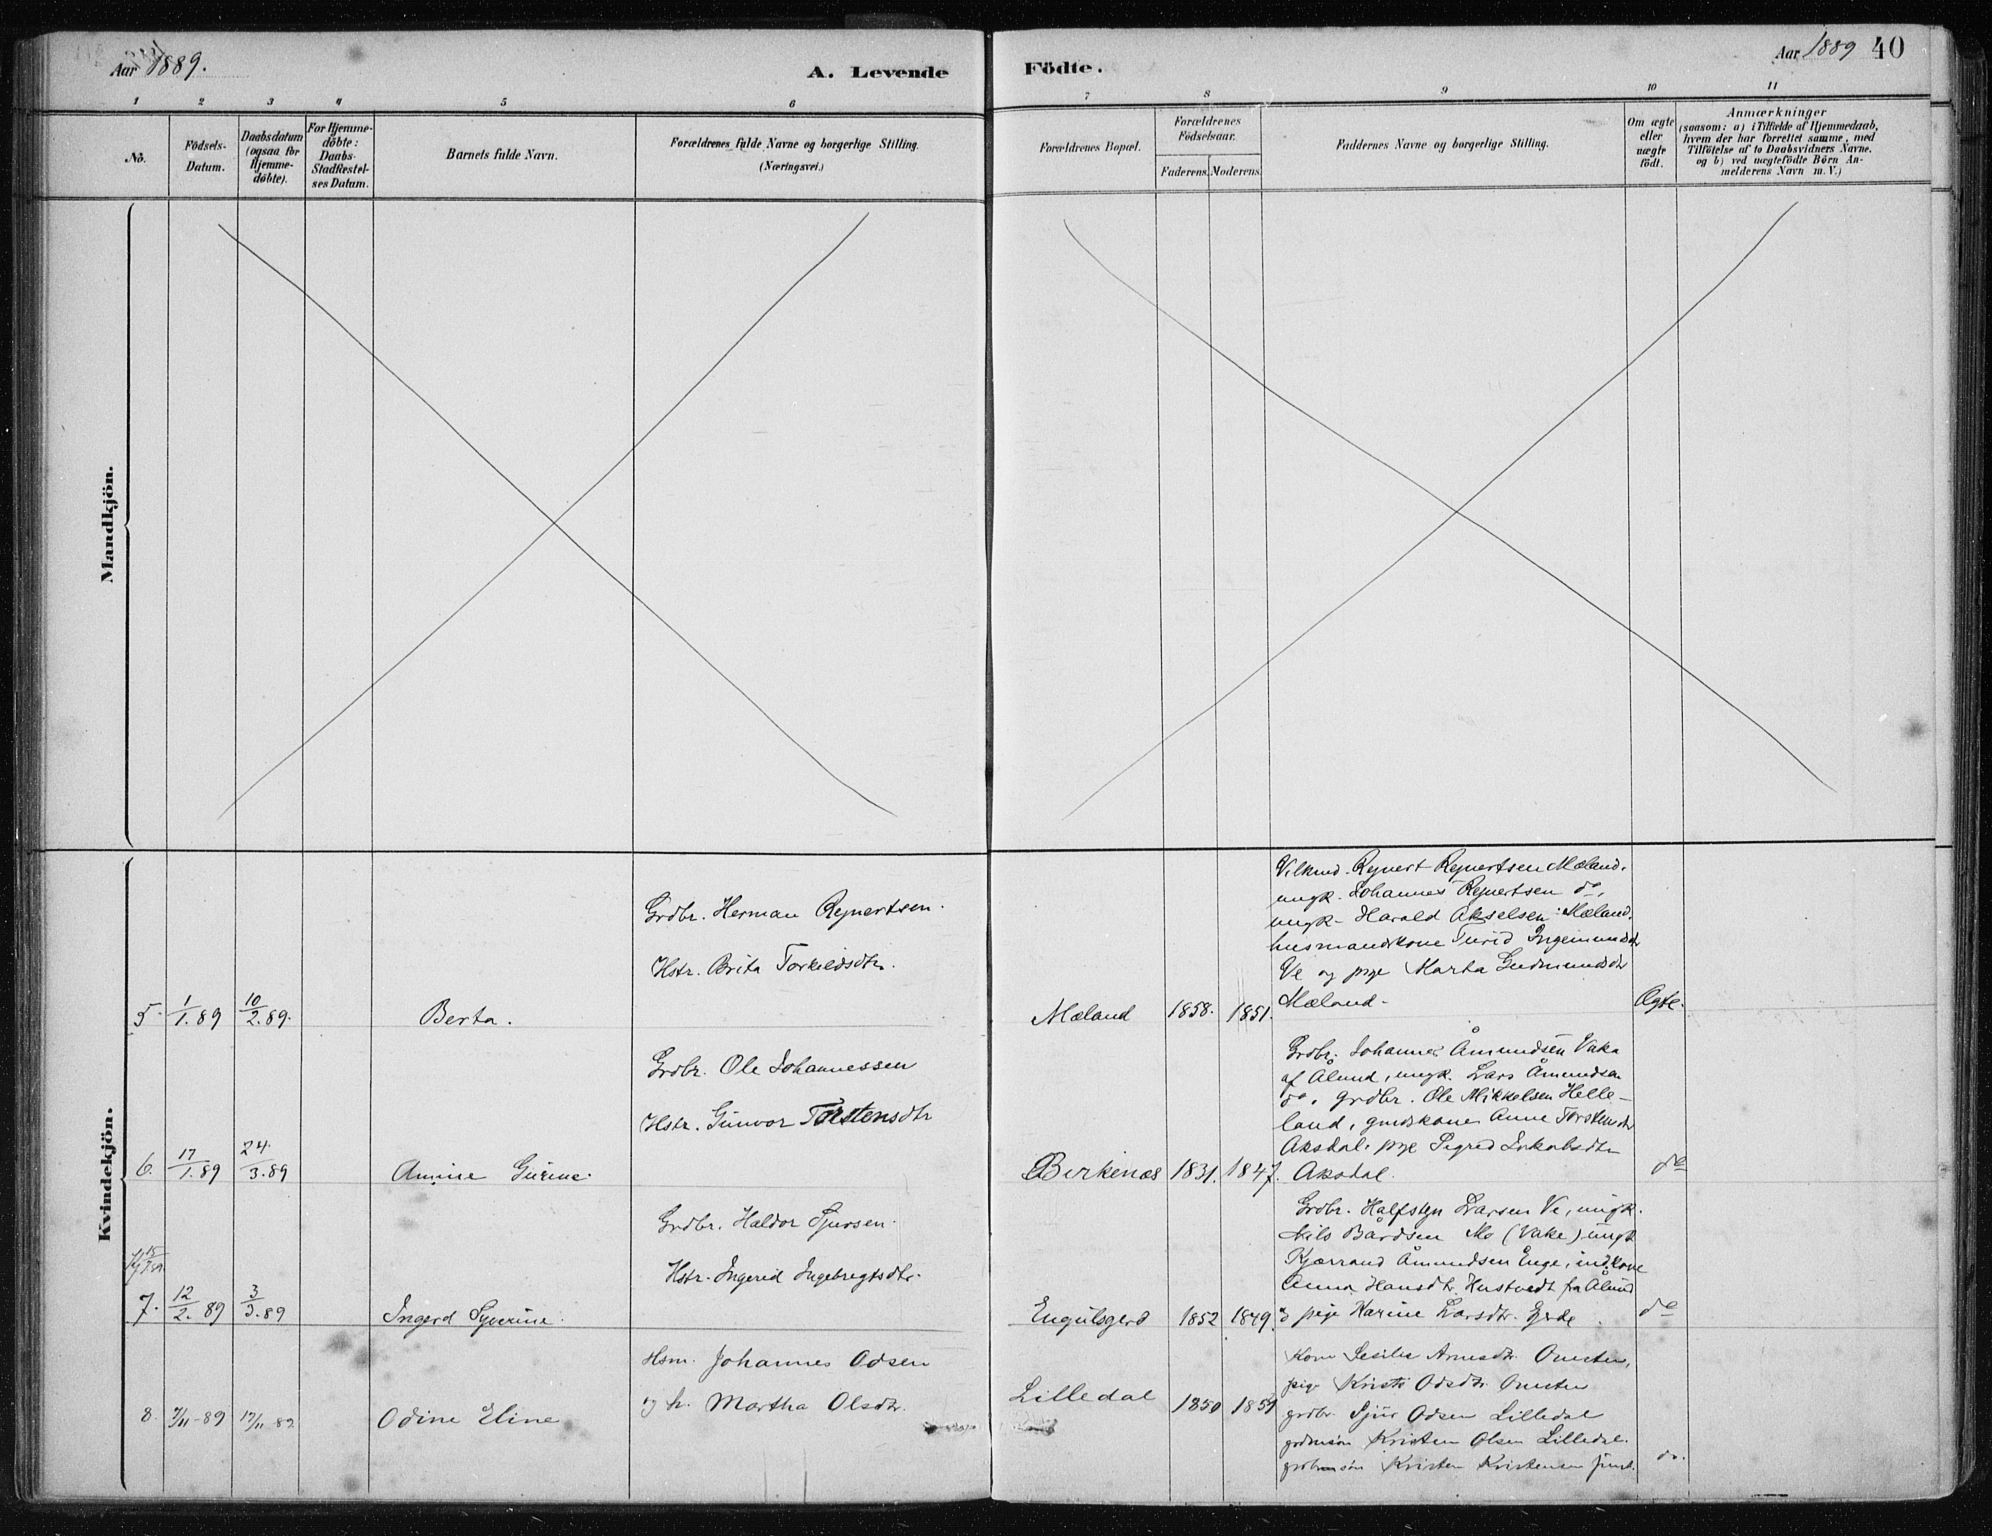 Aar 1889.
A. Levende
Födte.
Aar 1889 40
1 2 3 4 5 6 7 8 9 10 11
No.
Födsels-
Datum.
Daabsdatum
(ogsaa for
Hjemme-
döbte).
For Hjemme-
döbte:
Daabs-
Stadfæstel-
ses Datum.
Barnets fulde Navn.
Forældrenes fulde Navne og borgerlige Stilling.
(Næringsvei.)
Forældrenes Bopæl.
Forældrenes
Födselsaar.
Faderens. Moderens.
Faddernes Navne og borgerlige Stilling.
Om ægte
eller
uægte
födt.
Anmærkninger
(saasom: a) i Tilfælde af Hjemmedaab,
hvem der har forrettet samme, med
Tilföielse af to Daabsvidners Navne.
og b) ved uægtefödte Börn An-
melderens Navn m. V.)
Mandkjön.
Kvindekjön.
5. 1/1.89 10/2.89. Berta.
Grdbr. Herman Reinertsen.
Hstr. Brita Torkildsdtr.
Mæland 1858. 1851.
Reinert Reinertsen Mæland,
ungk. Johannes Reinertsen do,
ungk. Harald Akselsen Mæland.
husmandskone Turid Ingemundsdtr
Ve og pige Marta Gudmundsdtr
Mæland.
Ægte.
6. 17/1.89 24/3.89 Amine Gurine.
Grdbr. Ole Johannessen
Hstr. Gunvor Torstensdtr
Birkenæs 1831. 1847.
Grdbr. Johannes Åmundsen Vaka
af Ølund, ungk. Lars Åmundsen
do, grdbr. Ole Mikkelsen Helle-
land, gmdskone Anne Torstensdtr
Aksdal, pige Sigrid Jakobsdtr
Aksdal.
do
7. 12/2.89 3/3.89 Ingerd Syverine.
Grdbr. Haldor Sjursen.
Hstr. Ingerid Ingebregtsdtr.
Engulsgerd 1852 1849.
Grdbr. Halfstein Larsen Ve, ungk.
Nils Bårdsen Mo (Vake) ungk
Kjærrand Åmundsen Enge, indkone
Anna Hansdtr. Hustvedt fra Ølund
og pige Karine Larsdtr. Gjerde.
do
8. 7/11-89 17/11 89 Odine Eline
Hsm. Johannes Odsen
og h. Martha Olsdtr.
Lilledal 1850 1859
Kone Sesilie Arnesdtr. Omsten,
pige Kristi Odsdtr. Omsten
grdbr. Sjur Odsen Lilledal
grdmsön Kristen Olsen Lilledal.
grdbrmsön Kristen Kristensen
do.